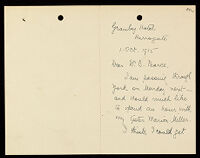 Granby Hotel,
Harrogate
1 Oct. 1915
Dear Mr. B. Morrell.
I am passing through
York on Monday next —
and should much like
to spend an hour with
my Sister Marion Miller.
I think I could get